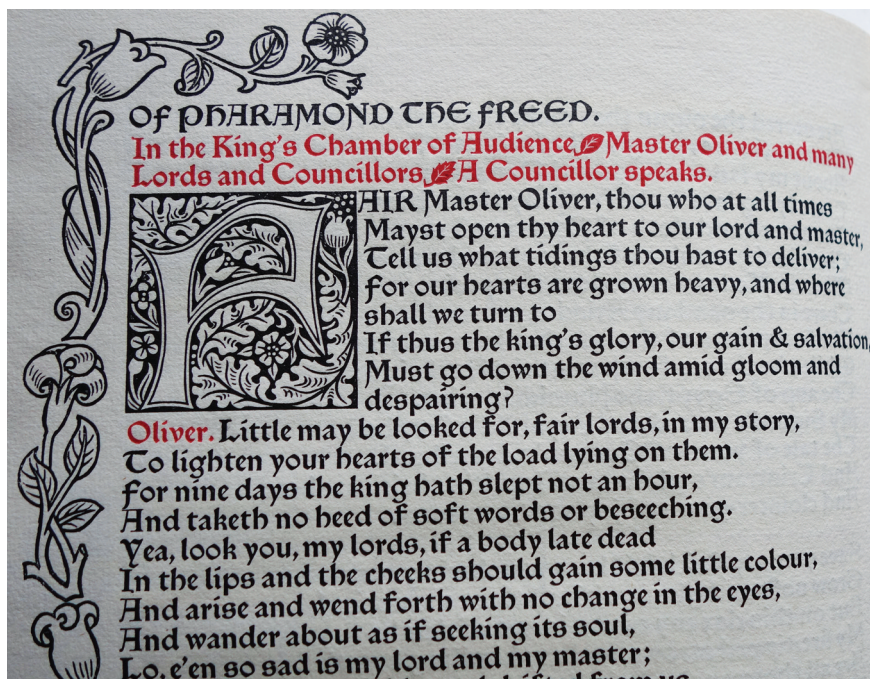 OF PHARAMOND THE FREED.
In the King's Chamber of Audience. Master Oliver and many
Lords and Councillors. A Councillor speaks.
FAIR Master Oliver, thou who at all times
Mayst open thy heart to our lord and master,
Tell us what tidings thou hast to deliver;
For our hearts are grown heavy, and where
shall we turn to
If thus the king's glory, our gain & salvation,
Must go down the wind amid gloom and
despairing?
Oliver. Little may be looked for, fair lords, in my story,
To lighten your hearts of the load lying on them.
For nine days the king hath slept not an hour,
And taketh no heed of soft words or beseeching.
Yea, look you, my lords, if a body late dead
In the lips and the cheeks should gain some little colour,
And arise and wend forth with no change in the eyes,
And wander about as if seeking its soul,
Lo, e'en so sad is my lord and my master;
drifted from us